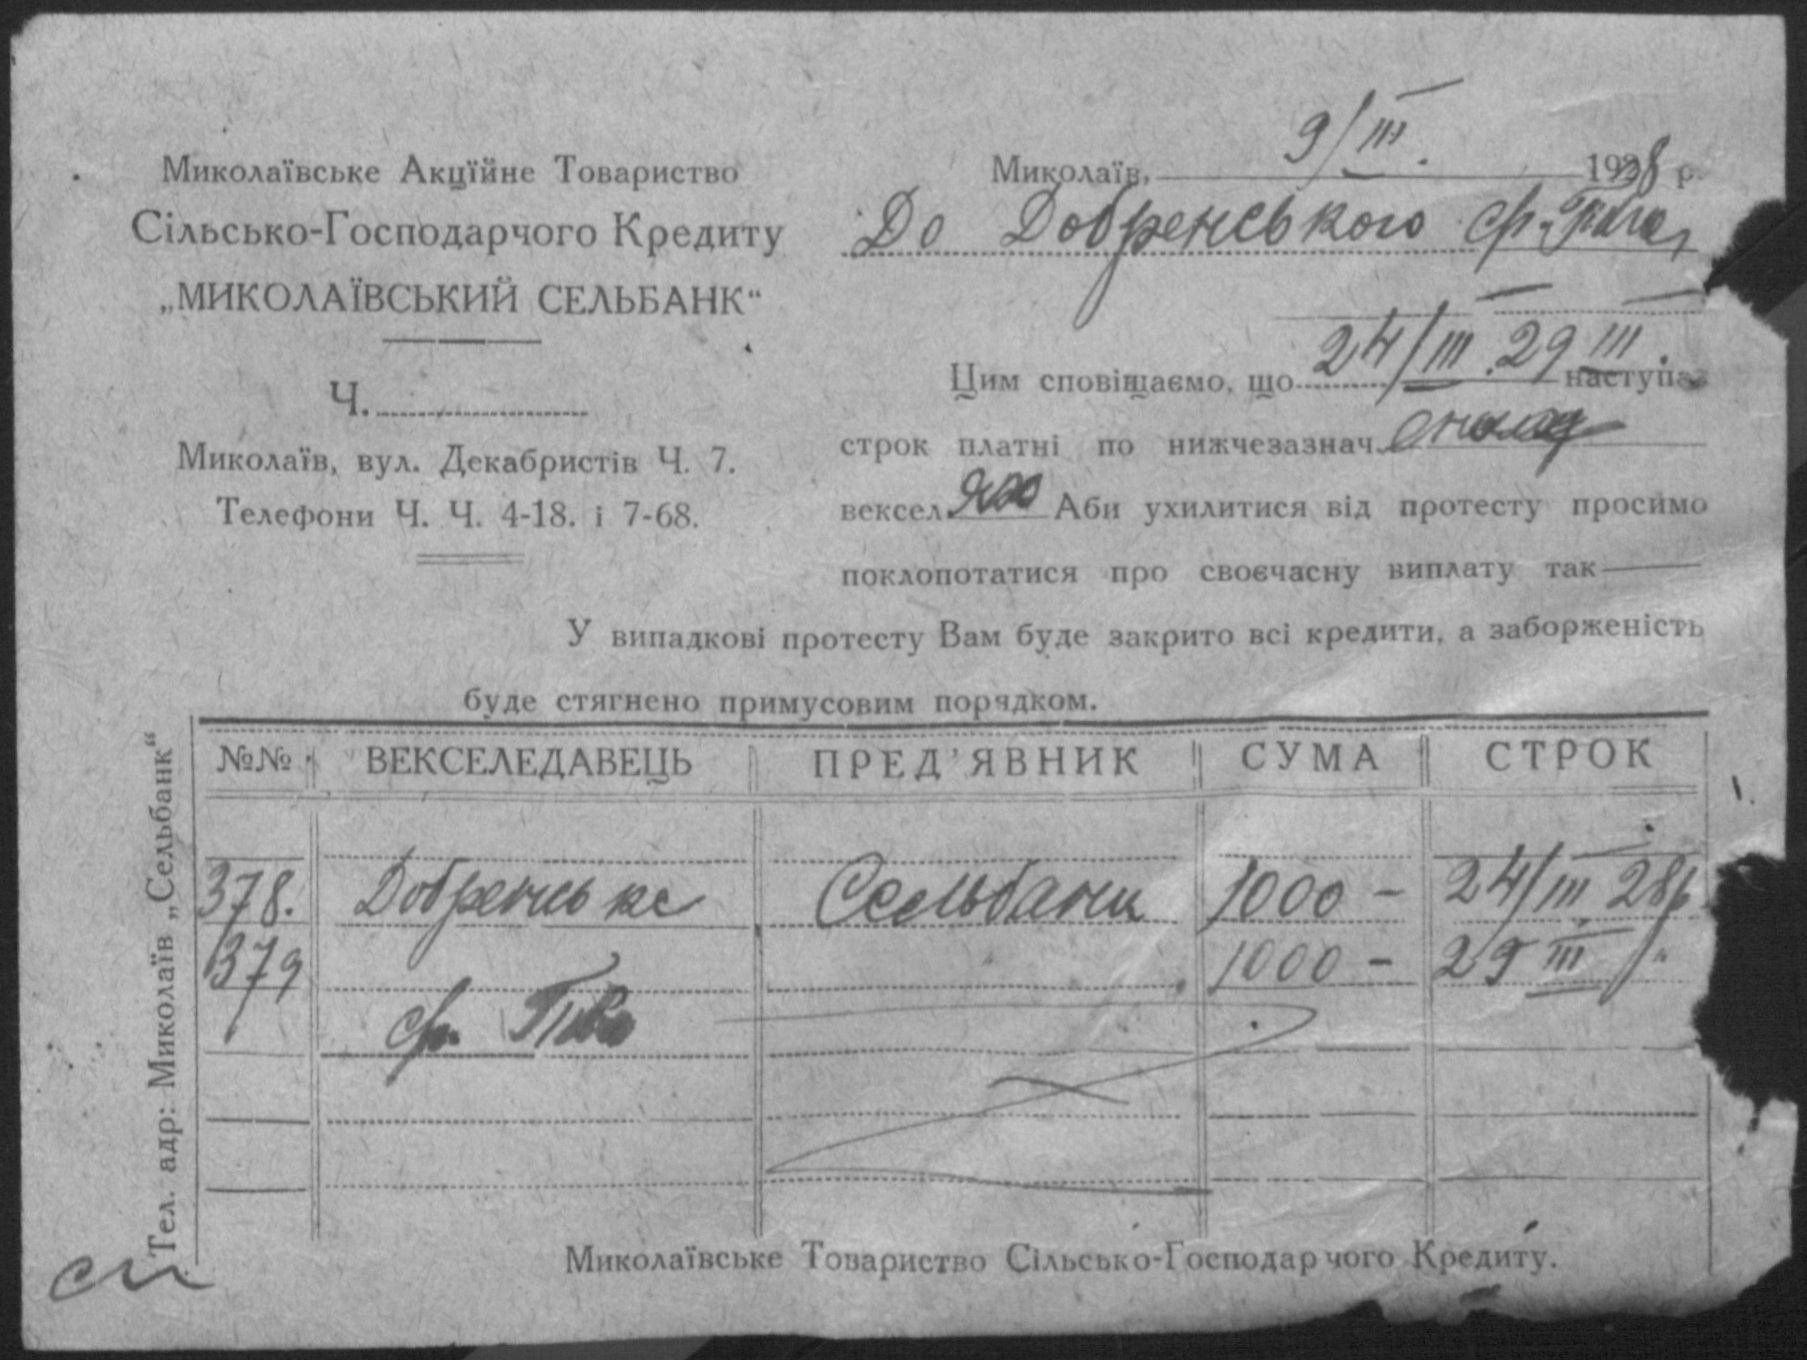 Миколаївське Акційне Товариство
Сільсько-Господарчого Кредиту
„МИКОЛАЇВСЬКИЙ СЕЛЬБАНК“
Ч.
Миколаїв, вул. Декабристів Ч. 7.
Телефони Ч. Ч. 4-18. і 7-68.
Миколаїв, 9/III. 1928 р.
До Добренського
Цим сповіщаємо, що 24/III. 29 III наступає
строк платні по нижчезазнач
вексел Аби ухилитися від протесту просимо
поклопотатися про своєчасну виплату так
У випадкові протесту Вам буде закрито всі кредити, а заборженість
буде стягнено примусовим порядком.
Тел. адр: Миколаїв „Сельбанк“
№№ ВЕКСЕЛЕДАВЕЦЬ ПРЕД’ЯВНИК СУМА СТРОК
378. Добренське Сельбанк 1000 – 24/III 28р
379 1000 – 29 III "
Миколаївське Товариство Сільсько-Господарчого Кредиту.